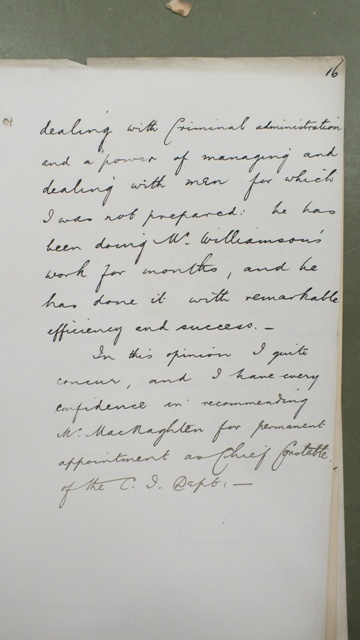 16
dealing with Criminal administration
and a power of managing and
dealing with men for which
I was not prepared: he has
been doing Mr. Williamson's
work for months, and he
has done it with remarkable
efficiency and success. —
In this opinion I quite
concur, and I have every
confidence in recommending
Mr. MacNaghten for permanent
appointment as Chief Constable
of the C. I. Dept: —